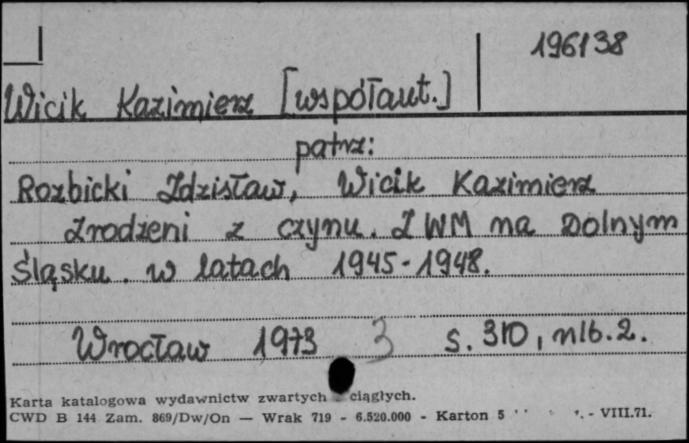 196138
Wicik Kazimierz [współaut.]
patrz:
Rozbicki Zdzisław, Wicik Kazimierz
Zrodzeni z czynu. ZWM na Dolnym
Śląsku. w latach 1945-1948.
Wrocław 1973 3 s. 310, nlb. 2.
Karta katalogowa wydawnictw zwartych ciągłych.
CWD B 144 Zam. 869/Dw/On — Wrak 719 - 6.520.000 - Karton 5 - VIII.71.